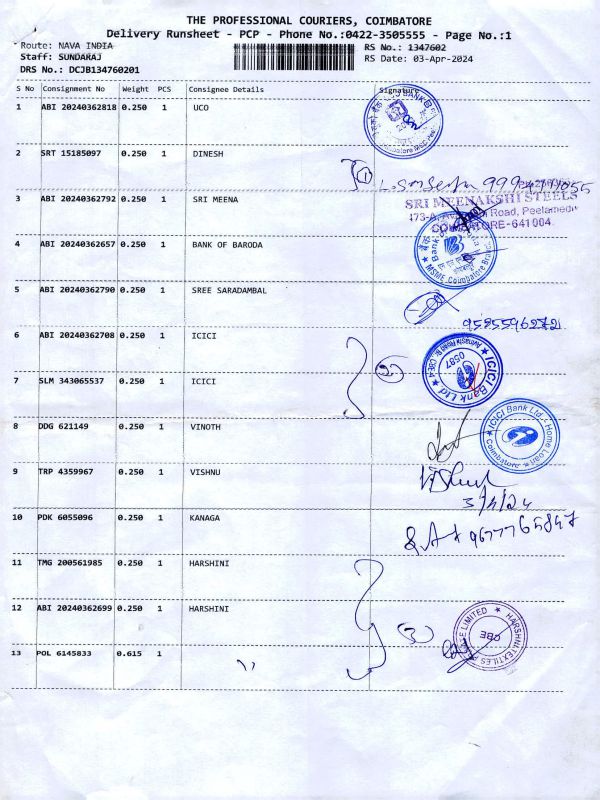 THE PROFESSIONAL COURIERS, COIMBATORE
Delivery Runsheet - PCP - Phone No.:0422-3505555 - Page No.:1
Route: NAVA INDIA
RS No.: 1347602
Staff: SUNDARAJ
RS Date: 03-Apr-2024
DRS No.: DCJB134760201
S No Consignment No Weight PCS Consignee Details Signature
1 ABI 20240362818 0.250 1 UCO
2 SRT 15185097 0.250 1 DINESH
3 ABI 20240362792 0.250 1 SRI MEENA
SRI MEENAKSHI STEELS
Road, Peelamedu
COIMBATORE-641004
4 ABI 20240362657 0.250 1 BANK OF BARODA
MSME Coimbatore
5 ABI 20240362790 0.250 1 SREE SARADAMBAL
6 ABI 20240362708 0.250 1 ICICI
2
ICICI Bank Ltd
0587
7 SLM 343065537 0.250 1 ICICI
8 DDG 621149 0.250 1 VINOTH
ICICI Bank Ltd - Home Loan
Coimbatore
9 TRP 4359967 0.250 1 VISHNU
Vishnu
3/4/24
10 PDK 6055096 0.250 1 KANAGA
9677765847
11 TMG 200561985 0.250 1 HARSHINI
12 ABI 20240362699 0.250 1 HARSHINI
3
HARSHNI TEXTILES
LIMITED
CBE
13 POL 6145833 0.615 1 "